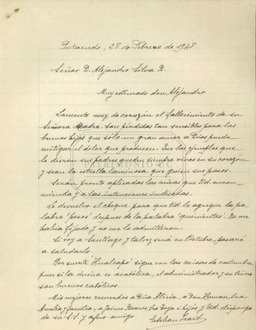 Putaendo, 28 de Febrero de 1948
Señor D. Alejandro Silva B.
Muy estimado don Alejandro
Lamento muy de corazón el fallecimiento de su
Señora Madre. Son pérdidas tan sensibles para los
buenos hijos que sólo un gran amor a Dios puede
mitigar el dolor que producen. Que los ejemplos que
le dieran sus padres queden siempre vivos en su corazón
y sean la estrella luminosa que guíen sus pasos.
Serán pronto aplicadas las misas que Ud. enco-
mienda y a las instituciones indicadas.
Le devuelvo el cheque para que Ud. le agregue la pa-
labra "pesos" después de la palabra "quinientos". No me
había fijado y no me lo admitieron.
Si voy a Santiago y tal vez será en Octubre, pasaré
a saludarlo.
Por suerte Hualcapo sigue con las misas de costumbre
pues si la dueña es acatólica, el administrador y su
son buenos católicos.
Mis mejores recuerdos a Dña Alicia, a Don Román, Tía
Amelia y familia, a Jaime hijos y Ud. disponga
de su affmo. amigo
Esteban